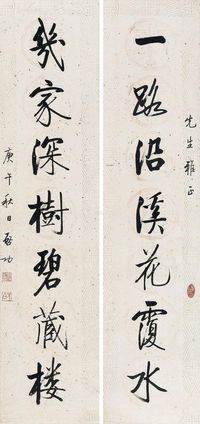 先生雅正
一路沿溪花覆水
幾家深樹碧藏楼
庚午秋日启功